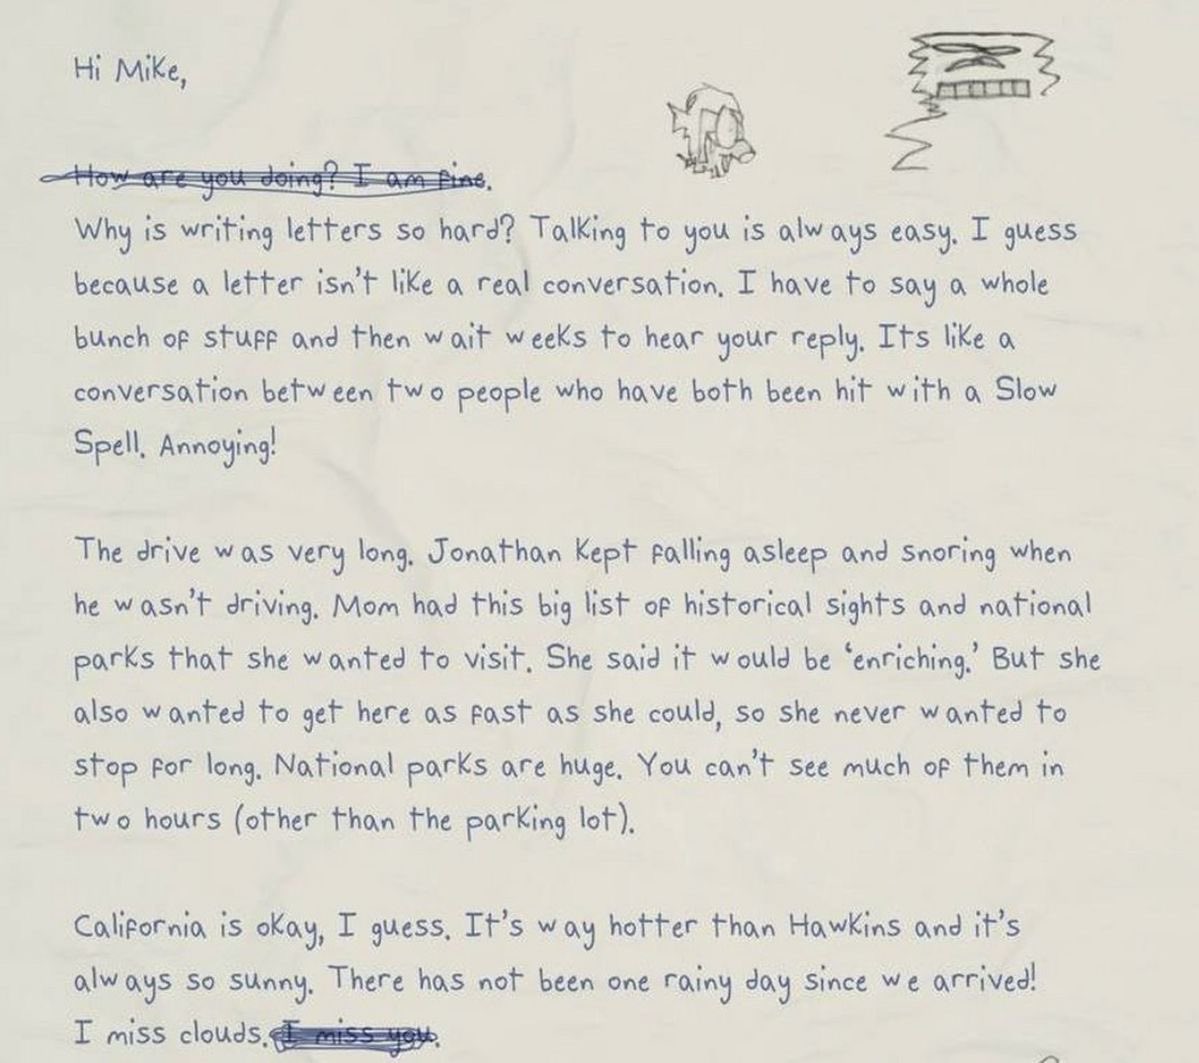 Hi Mike,
How are you doing? I am fine.
Why is writing letters so hard? Talking to you is always easy. I guess
because a letter isn't like a real conversation. I have to say a whole
bunch of stuff and then wait weeks to hear your reply. Its like a
conversation between two people who have both been hit with a Slow
Spell. Annoying!
The drive was very long. Jonathan kept falling asleep and snoring when
he wasn't driving. Mom had this big list of historical sights and national
parks that she wanted to visit. She said it would be 'enriching.' But she
also wanted to get here as fast as she could, so she never wanted to
stop for long. National parks are huge. You can't see much of them in
two hours (other than the parking lot).
California is okay, I guess. It's way hotter than Hawkins and it's
always so sunny. There has not been one rainy day since we arrived!
I miss clouds. I miss you.